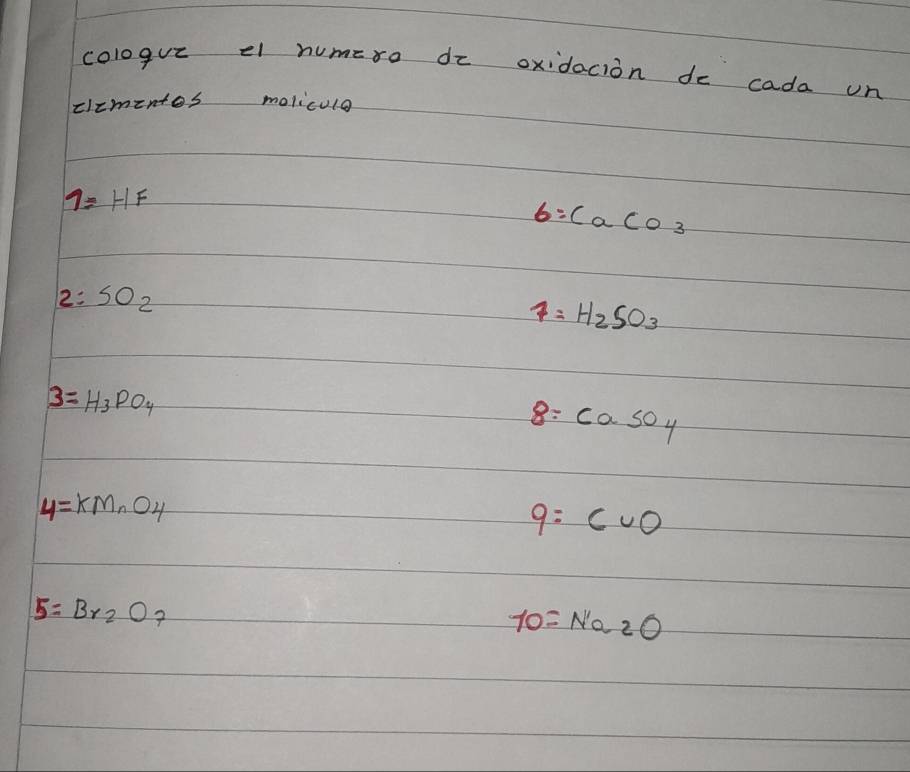 coloque el numero de oxidación de cada un
elementos molicula
1= HF
6= CaCO3
2= SO2
7= H2SO3
3= H3PO4
8= CaSO4
4= KMnO4
9= CuO
5= Br2O7
10= Na2O